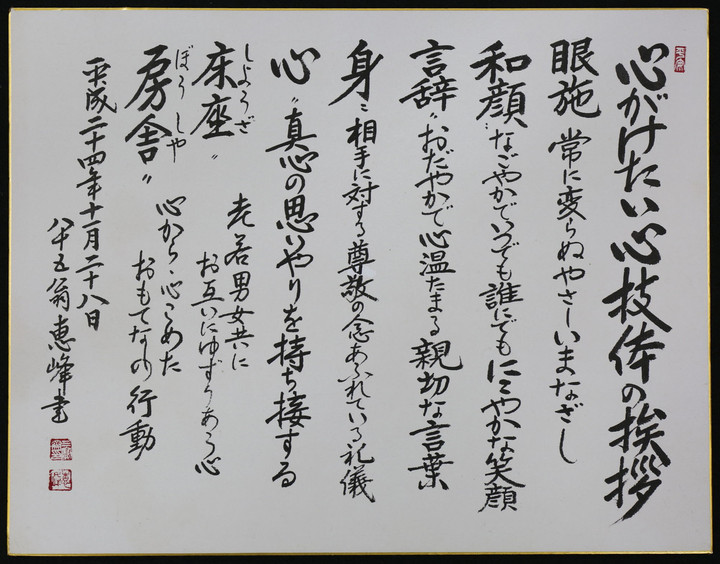 心がけたい心技体の挨拶
眼施 常に変らぬやさしいまなざし
和顔〃なごやかでいつでも誰にでもにこやかな笑顔
言辞〃おだやかで心温たまる親切な言葉
身〃相手に対する尊敬の念あふれている礼儀
心〃真心の思いやりを持ち接する
床座〃しようざ 老若男女共に
お互いにゆずりあう心
房舎〃ぼうしや 心から心こめた
おもてなしの行動
平成二十四年十一月二十八日
八十五翁恵峰書